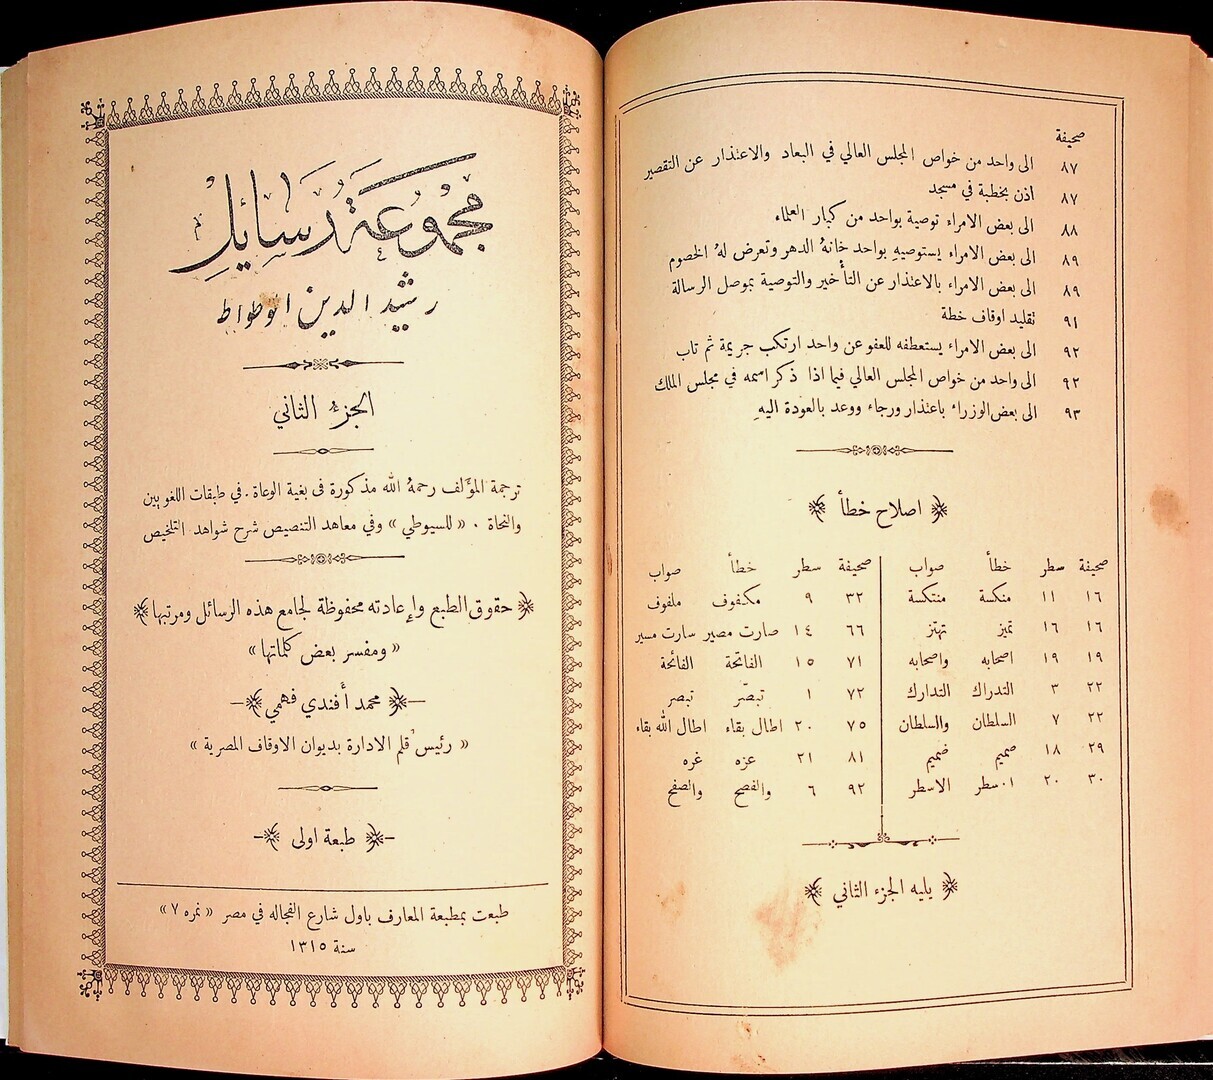 صحيفة
٨٧ الى واحد من خواص المجلس العالي في البعاد والاعتذار عن التقصير
٨٧ اذن بخطبة في مسجد
٨٨ الى بعض الامراء توصية بواحد من كبار العلماء
٨٩ الى بعض الامراء يستوصيهِ بواحد خانهُ الدهر وتعرض لهُ الخصوم
٨٩ الى بعض الامراء بالاعتذار عن التأخير والتوصية بموصل الرسالة
٩١ تقليد اوقاف خطة
٩٢ الى بعض الامراء يستعطفه للعفو عن واحد ارتكب جريمة ثم تاب
٩٢ الى واحد من خواص المجلس العالي فيما اذا ذكر اسمه في مجلس الملك
٩٣ الى بعض الوزراء باعتذار ورجاء ووعد بالعودة اليهِ
اصلاح خطأ
صحيفة سطر خطأ صواب صحيفة سطر خطأ صواب
١٦ ١١ منكسة منتكسة ٣٢ ٩ مكفوف ملفوف
١٦ ١٦ تميز تهتز ٦٦ ١٤ صارت مصير سارت مسير
١٩ ١٩ اصحابه واصحابه ٧١ ١٥ الفاتحة الفائحة
٢٢ ٣ التدراك التدارك ٧٢ ١ تبصّر تبصر
٢٢ ٧ السلطان والسلطان ٧٥ ٢٠ اطال بقاء اطال الله بقاء
٢٩ ١٨ صميم ضميم ٨١ ٢١ عزه غره
٣٠ ٢٠ الاسطر ٩٢ ٦ والفصح والصفح
يليه الجزء الثاني
مجموعة رسائل
رشيد الدين الوطواط
الجزء الثاني
ترجمة المؤلف رحمهُ الله مذكورة فى بغية الوعاة . في طبقات اللغويين
والنحاة . « للسيوطي » وفي معاهد التنصيص شرح شواهد التلخيص
حقوق الطبع وإعادته محفوظة لجامع هذه الرسائل ومرتبها
« ومفسر بعض كلماتها »
محمد أفندي فهمي
« رئيس قلم الادارة بديوان الاوقاف المصرية »
طبعة اولى
طبعت بمطبعة المعارف باول شارع الفجاله في مصر « نمره ٧ »
سنة ١٣١٥